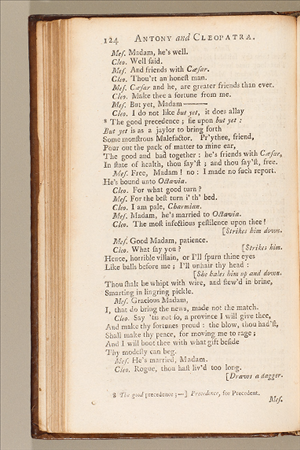 124 ANTONY and CLEOPATRA.
Mes. Madam, he's well.
Cleo. Well said.
Mes. And friends with Cæsar.
Cleo. Thou'rt an honest man.
Mes. Cæsar and he, are greater friends than ever.
Cleo. Make thee a fortune from me.
Mes. But yet, Madam———
Cleo. I do not like but yet, it does allay
* The good precedence; fie upon but yet:
But yet is as a jaylor to bring forth
Some monstrous Malefactor. Pr'ythee, friend,
Pour out the pack of matter to mine ear,
The good and bad together: he's friends with Cæsar,
In state of health, thou say'st; and thou say'st, free.
Mes. Free, Madam! no: I made no such report.
He's bound unto Octavia.
Cleo. For what good turn?
Mes. For the best turn i' th' bed.
Cleo. I am pale, Charmian.
Mes. Madam, he's married to Octavia.
Cleo. The most infectious pestilence upon thee!
[Strikes him down.
Mes. Good Madam, patience.
Cleo. What say you? [Strikes him.
Hence, horrible villain, or I'll spurn thine eyes
Like balls before me; I'll unhair thy head:
[She hales him up and down.
Thou shalt be whipt with wire, and stew'd in brine,
Smarting in lingring pickle.
Mes. Gracious Madam,
I, that do bring the news, made not the match.
Cleo. Say 'tis not so, a province I will give thee,
And make thy fortunes proud: the blow, thou had'st,
Shall make thy peace, for moving me to rage;
And I will boot thee with what gift beside
Thy modesty can beg.
Mes. He's married, Madam.
Cleo. Rogue, thou hast liv'd too long.
[Draws a dagger.
The good precedence;—] Precedence, for Precedent.
Mes.